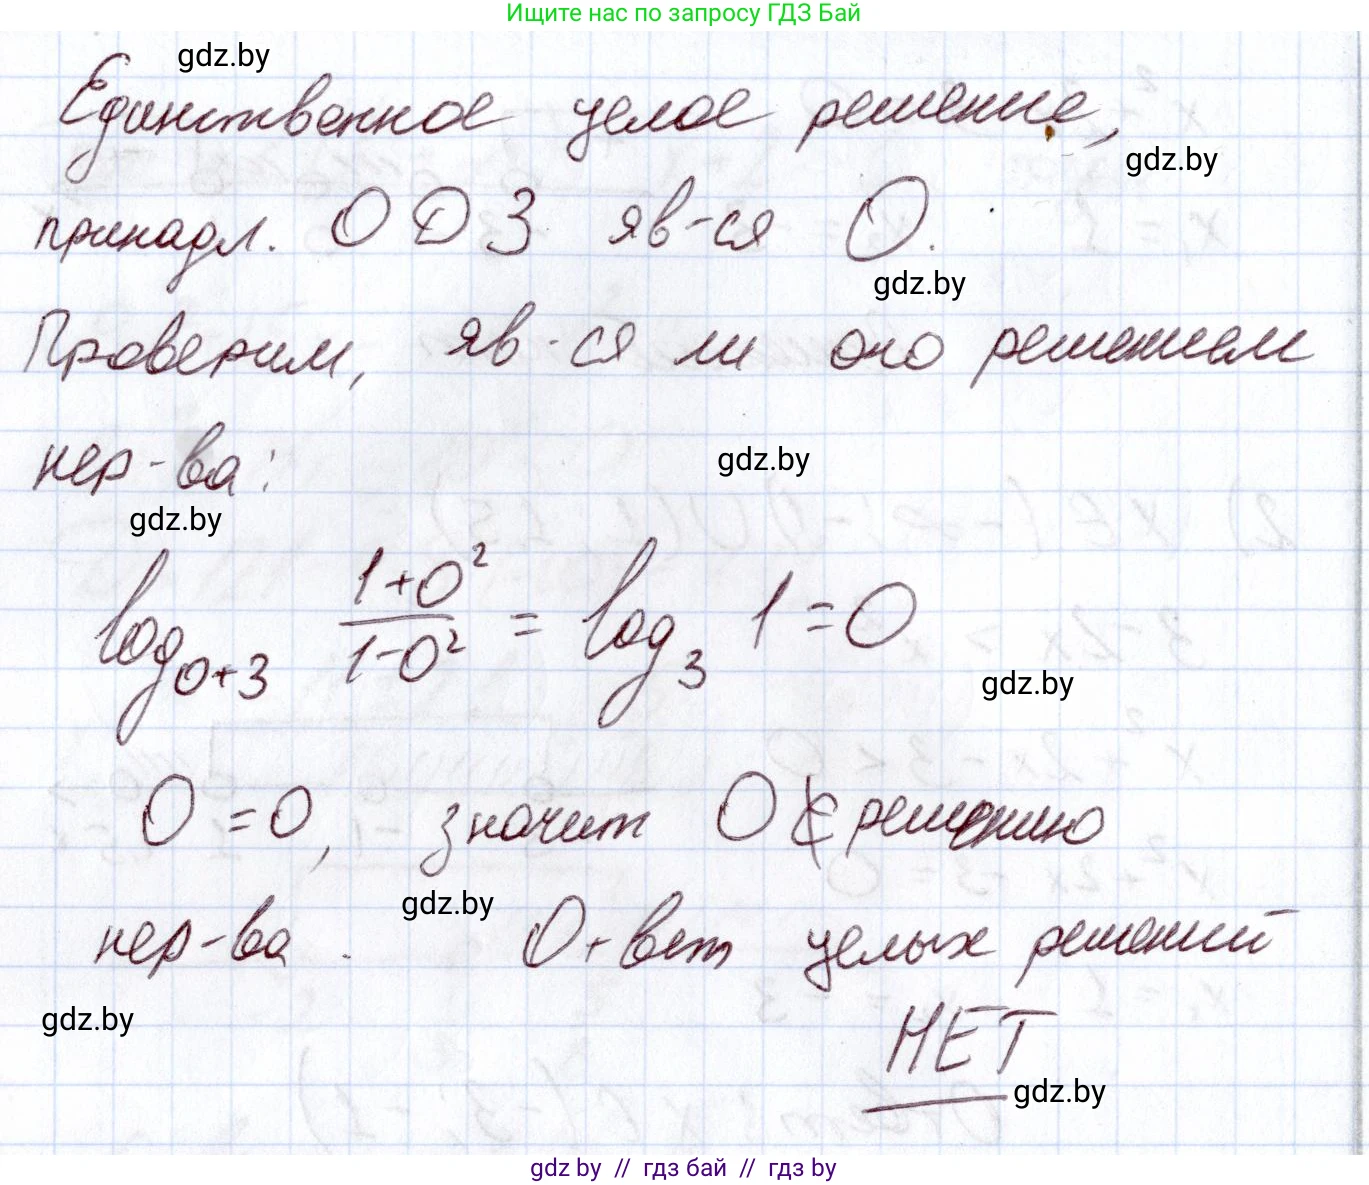 Ищите нас по запросу ГДЗ Бай
gdz.by
Единственное целое решение,
gdz.by
принадл. ОДЗ яв-ся 0.
gdz.by
Проверим, яв-ся ли оно решением
нер-ва:
gdz.by
gdz.by
log₀₊₃ (1+0²)/(1-0²) = log₃ 1 = 0
gdz.by
0 = 0, значит 0 ∉ решению
gdz.by
нер-ва. Ответ целых решений
НЕТ
gdz.by
gdz.by
gdz by // гдз бай // гдз by